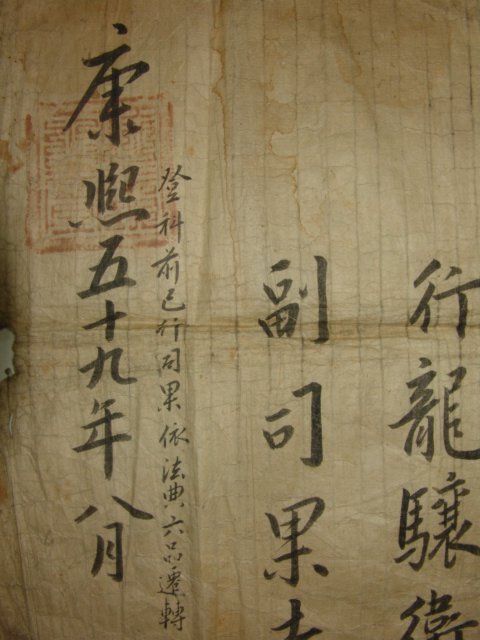 行龍驤衛
副司果者
康熙五十九年八月
登科前已行司果依法典六品遷轉